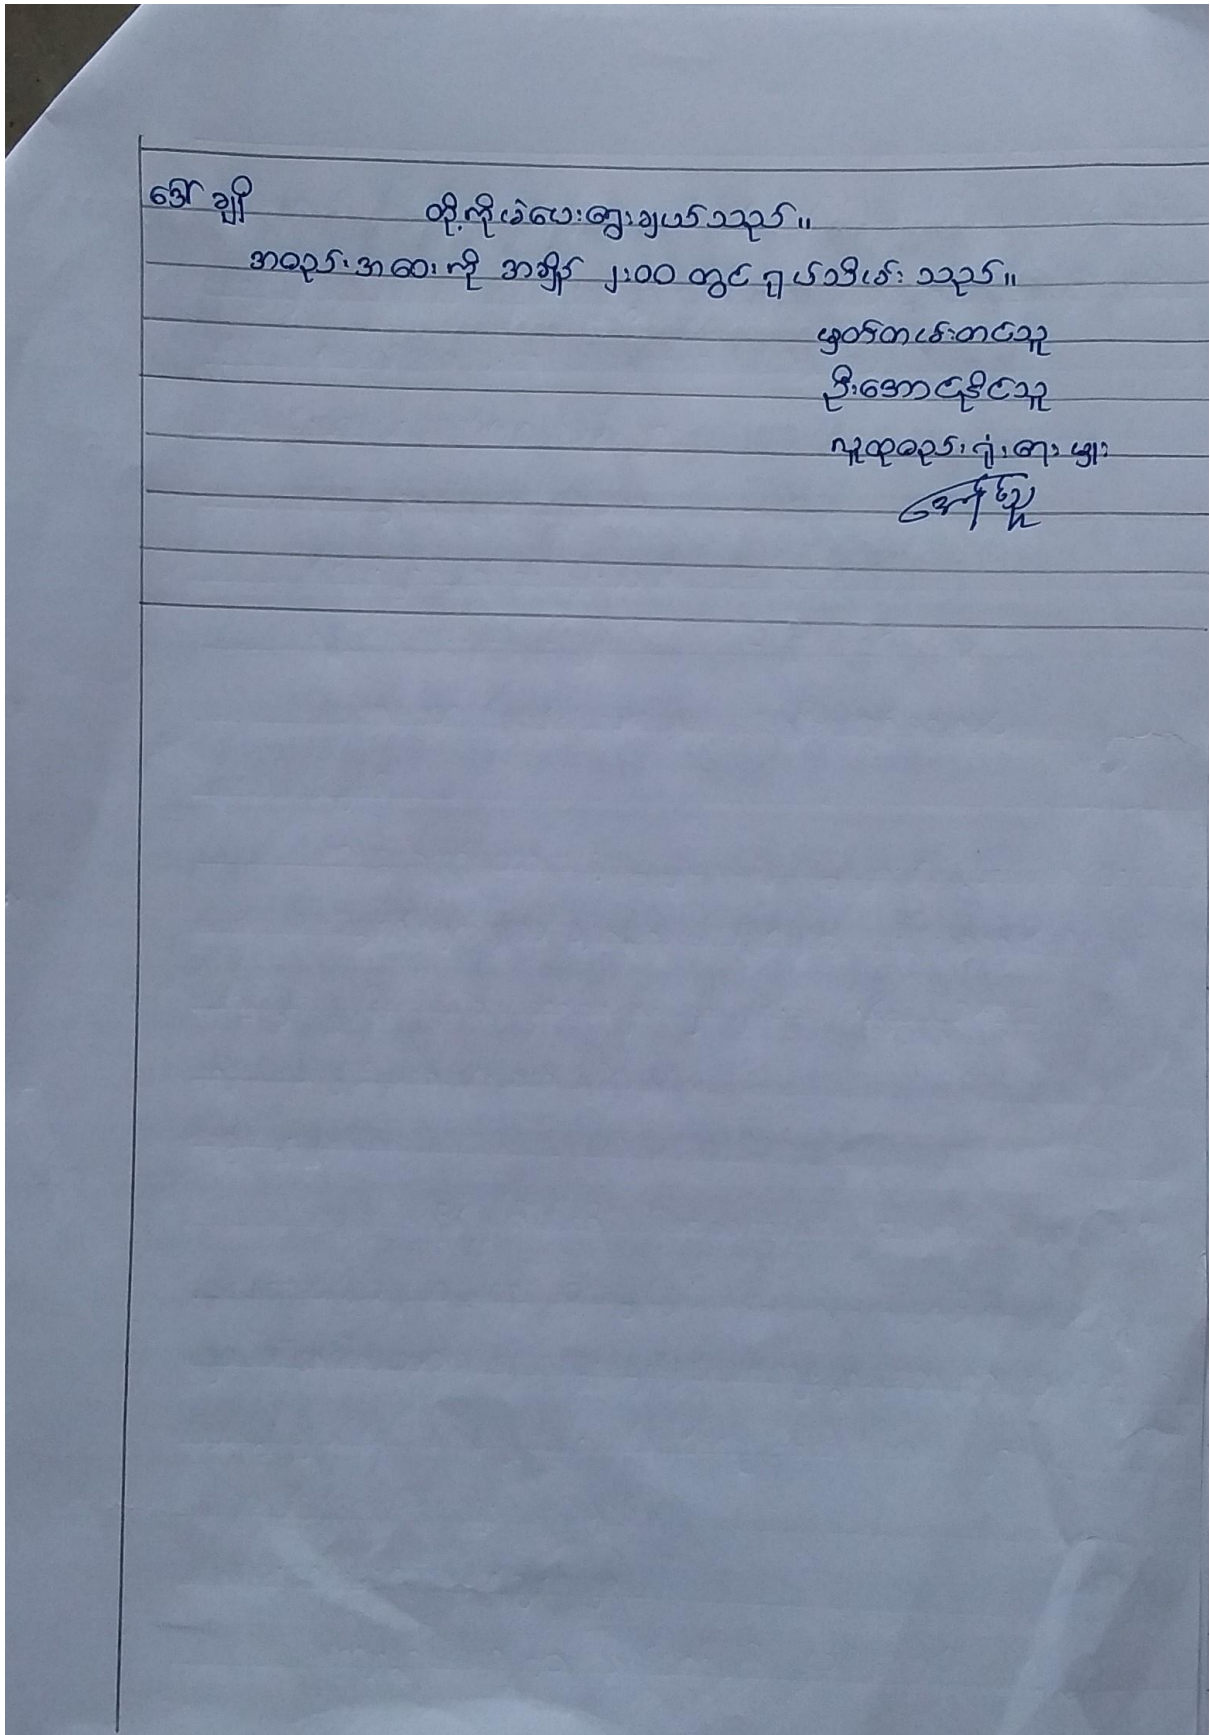 ဒေါ်ချို တို့ကိုခန့်ပေးရွေးချယ်သည်။
အစည်းအဝေးကို အချိန် ၂:၀၀ တွင် ရုပ်သိမ်းသည်။
မှတ်တမ်းတင်သူ
ဦးအောင်နိုင်သူ
လူထုစည်းရုံးရေးမှူး